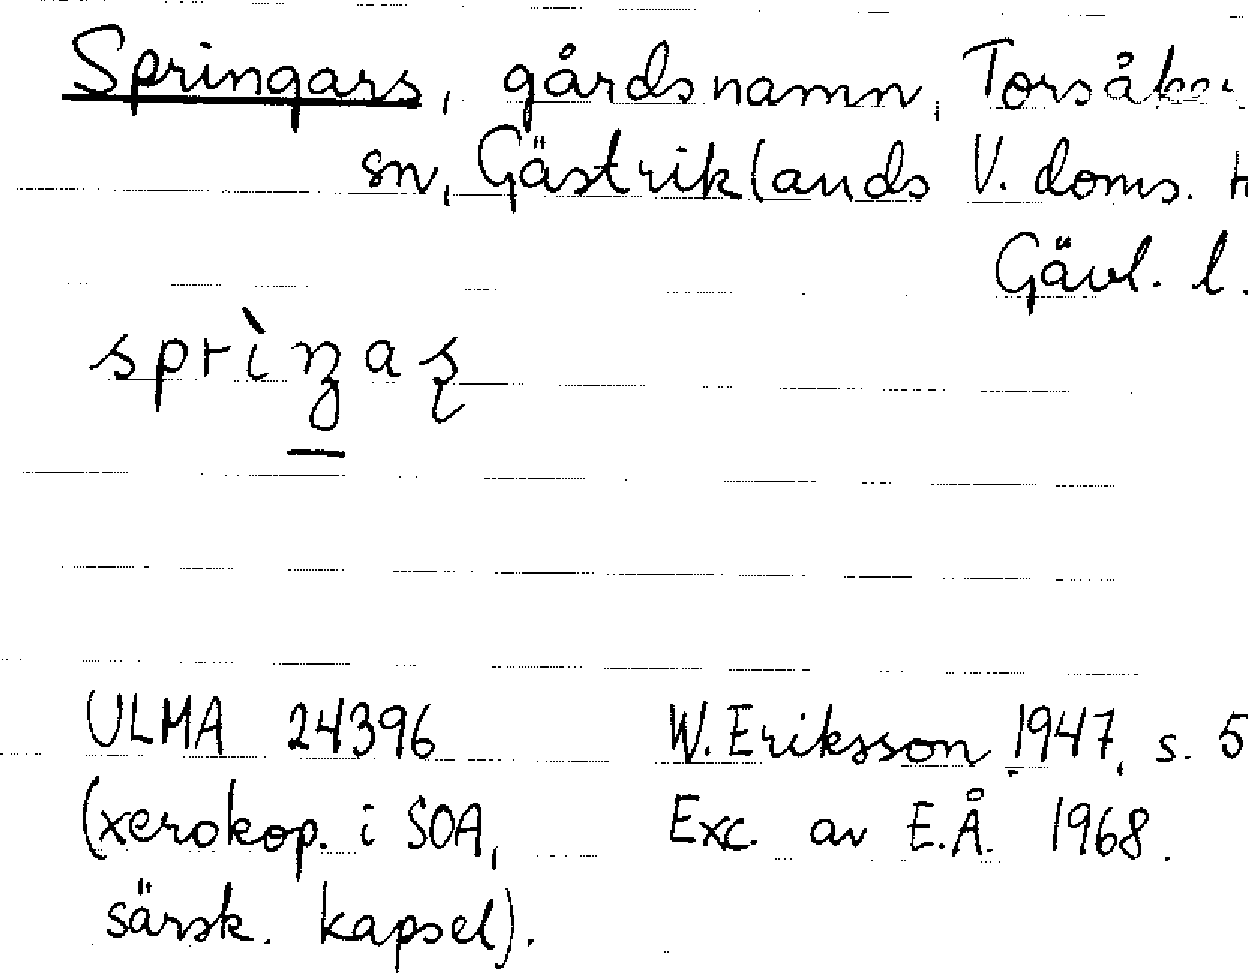 Springars, gårdsnamn, Torsåker
sn, Gästriklands V. doms.
Gävl. l.
ULMA 24396 W. Eriksson 1947, s. 5
(xerokop. i SOA, Exc. av E.Å. 1968.
särsk. kapsel).